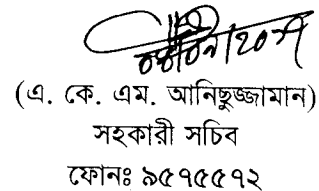 (এ. কে. এম. আনিছুজ্জামান)
সহকারী সচিব
ফোনঃ ৯৫৭৫৫৭২